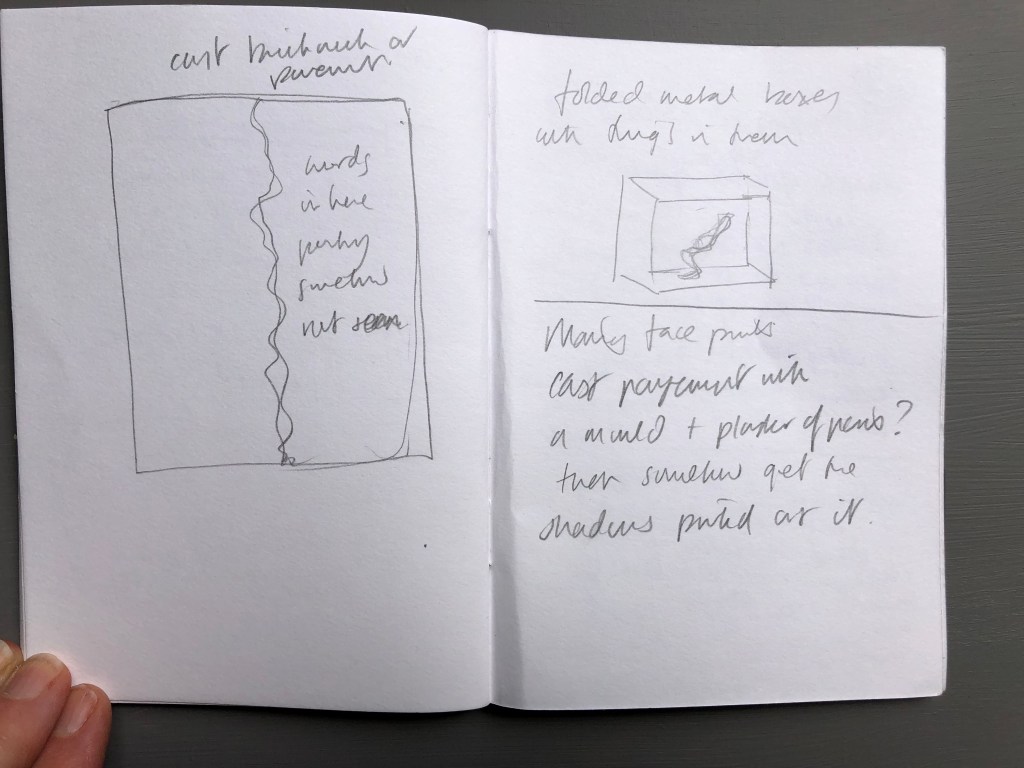 cast brickwork or
pavement.
words
in here
partly
somehow
not seen
folded metal boxes
with things in them
face prints
cast pavement with
a mould + plaster of paris?
then somehow get the
shadows printed on it.